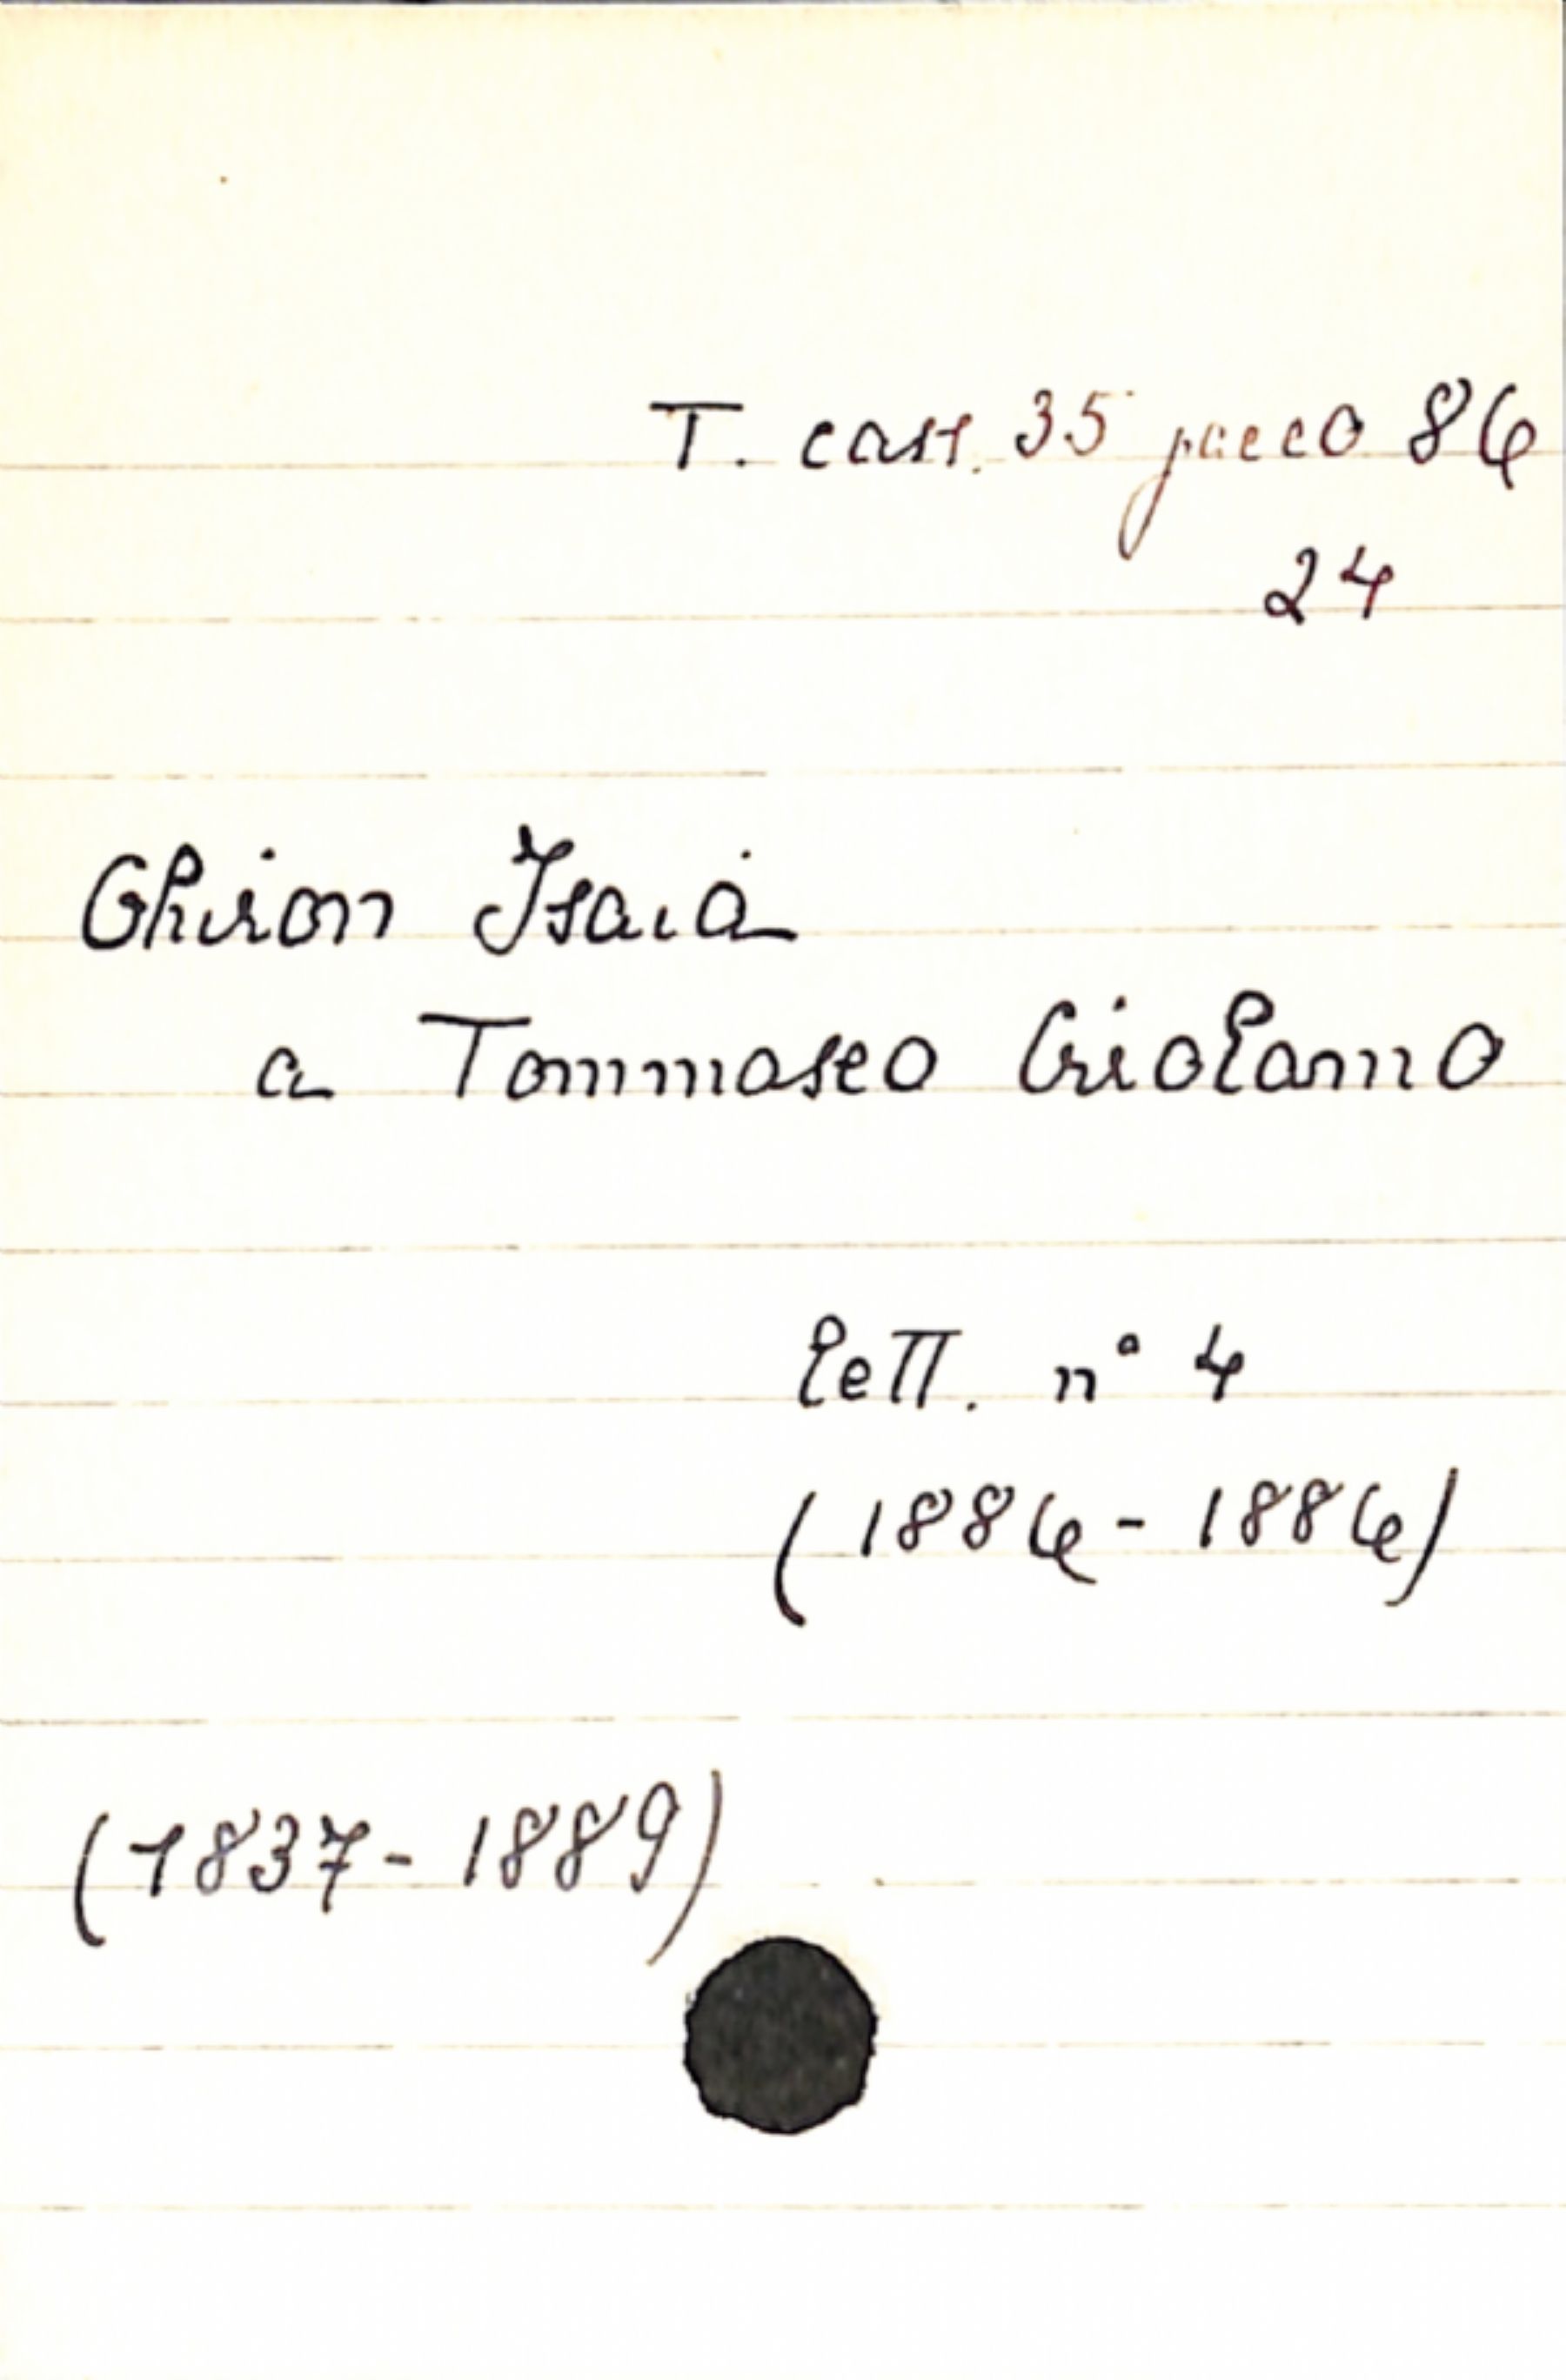 T. cass. 35 pacco 86
24
Ghiron Isaia
a Tommaseo Girolamo
lett. n° 4
(1886 - 1886)
(1837 - 1889)